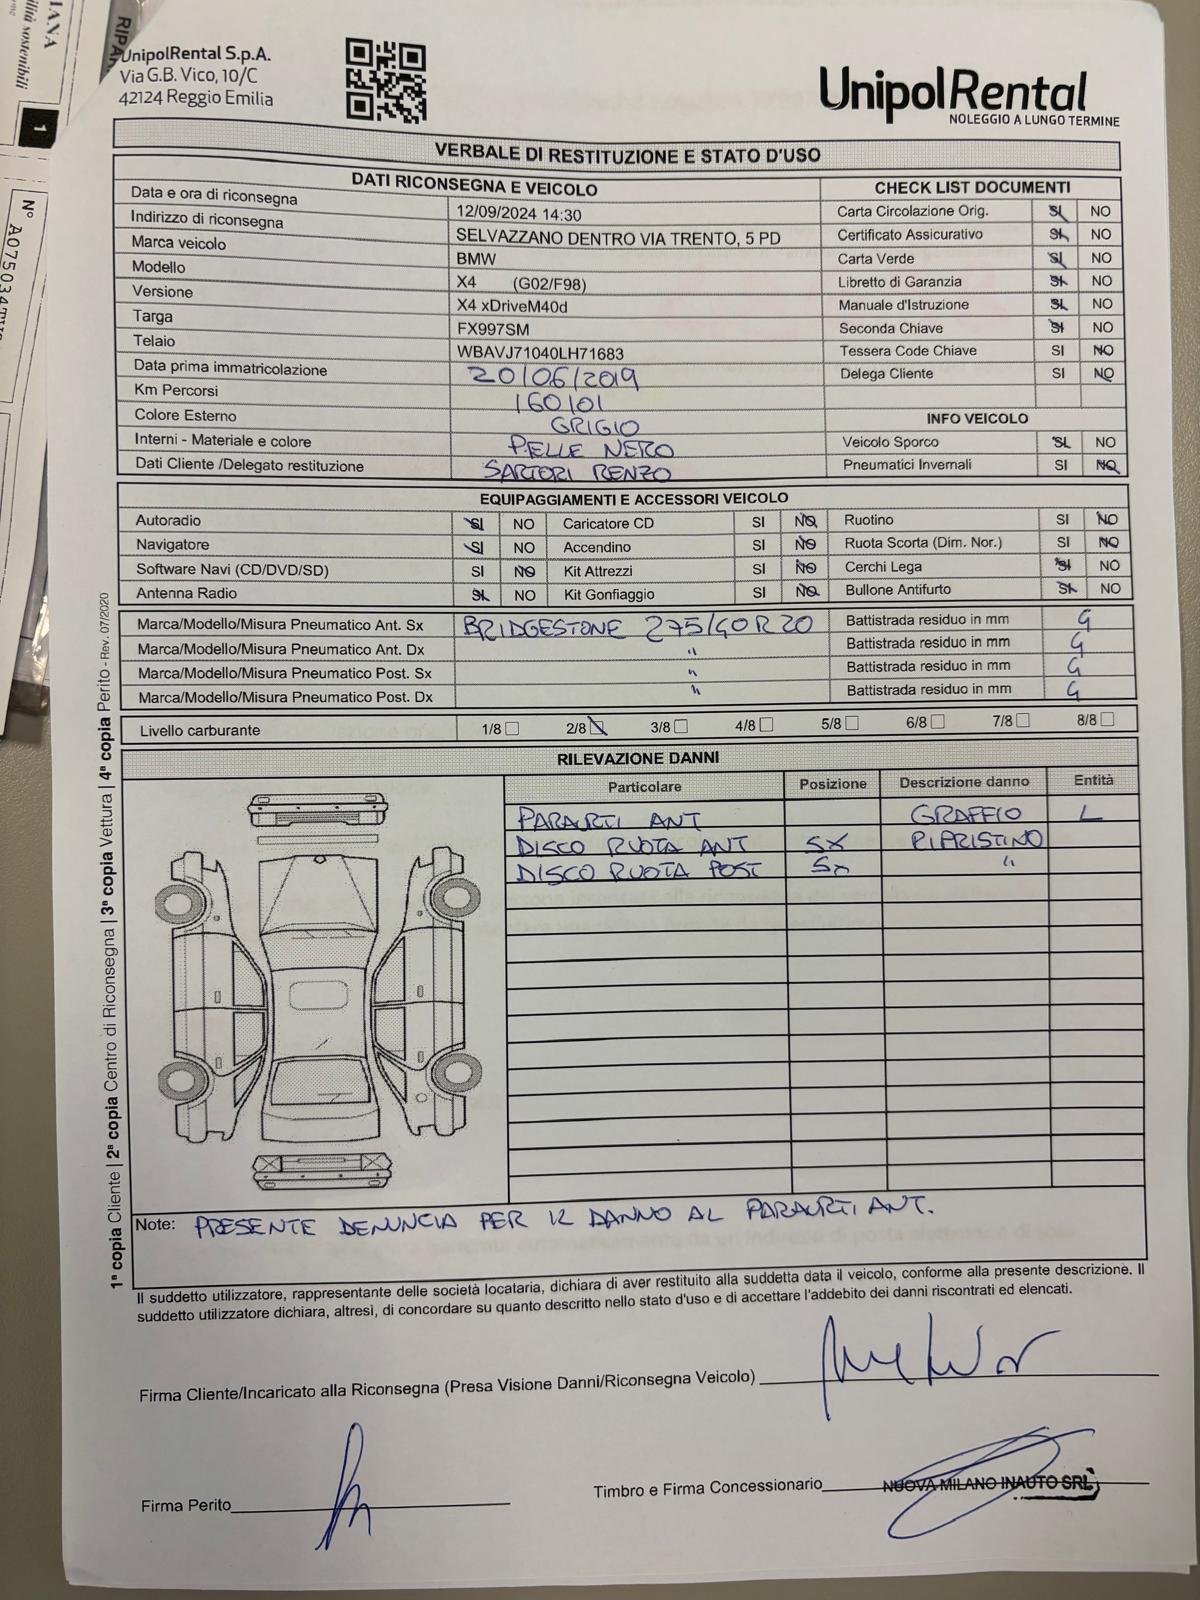 IANA
ilità sostenibili
RIPA
1
N° A075034
UnipolRental S.p.A.
Via G.B. Vico, 10/C
42124 Reggio Emilia
UnipolRental
NOLEGGIO A LUNGO TERMINE
VERBALE DI RESTITUZIONE E STATO D'USO
DATI RICONSEGNA E VEICOLO
Data e ora di riconsegna 12/09/2024 14:30
Indirizzo di riconsegna SELVAZZANO DENTRO VIA TRENTO, 5 PD
Marca veicolo BMW
Modello X4 (G02/F98)
Versione X4 xDriveM40d
Targa FX997SM
Telaio WBAVJ71040LH71683
Data prima immatricolazione 20/06/2019
Km Percorsi 160101
Colore Esterno GRIGIO
Interni - Materiale e colore PELLE NERO
Dati Cliente /Delegato restituzione SARTORI RENZO
CHECK LIST DOCUMENTI
Carta Circolazione Orig. SI NO
Certificato Assicurativo SI NO
Carta Verde SI NO
Libretto di Garanzia SI NO
Manuale d'Istruzione SI NO
Seconda Chiave SI NO
Tessera Code Chiave SI NO
Delega Cliente SI NO
INFO VEICOLO
Veicolo Sporco SI NO
Pneumatici Invernali SI NO
EQUIPAGGIAMENTI E ACCESSORI VEICOLO
Autoradio SI NO Caricatore CD SI NO Ruotino SI NO
Navigatore SI NO Accendino SI NO Ruota Scorta (Dim. Nor.) SI NO
Software Navi (CD/DVD/SD) SI NO Kit Attrezzi SI NO Cerchi Lega SI NO
Antenna Radio SI NO Kit Gonfiaggio SI NO Bullone Antifurto SI NO
Marca/Modello/Misura Pneumatico Ant. Sx BRIDGESTONE 275/40R20 Battistrada residuo in mm
Marca/Modello/Misura Pneumatico Ant. Dx " Battistrada residuo in mm
Marca/Modello/Misura Pneumatico Post. Sx " Battistrada residuo in mm
Marca/Modello/Misura Pneumatico Post. Dx " Battistrada residuo in mm
Livello carburante 1/8 2/8 3/8 4/8 5/8 6/8 7/8 8/8
RILEVAZIONE DANNI
Particolare Posizione Descrizione danno Entità
PARAURTI ANT GRAFFIO L
DISCO RUOTA ANT SX RIPRISTINO
DISCO RUOTA POST SX "
Note: PRESENTE DENUNCIA PER IL DANNO AL PARAURTI ANT.
Il suddetto utilizzatore, rappresentante delle società locataria, dichiara di aver restituito alla suddetta data il veicolo, conforme alla presente descrizione. Il
suddetto utilizzatore dichiara, altresì, di concordare su quanto descritto nello stato d'uso e di accettare l'addebito dei danni riscontrati ed elencati.
Firma Cliente/Incaricato alla Riconsegna (Presa Visione Danni/Riconsegna Veicolo)
Firma Perito
Timbro e Firma Concessionario NUOVA MILANO INAUTO SRL
1ª copia Cliente | 2ª copia Centro di Riconsegna | 3ª copia Vettura | 4ª copia Perito - Rev. 07/2020